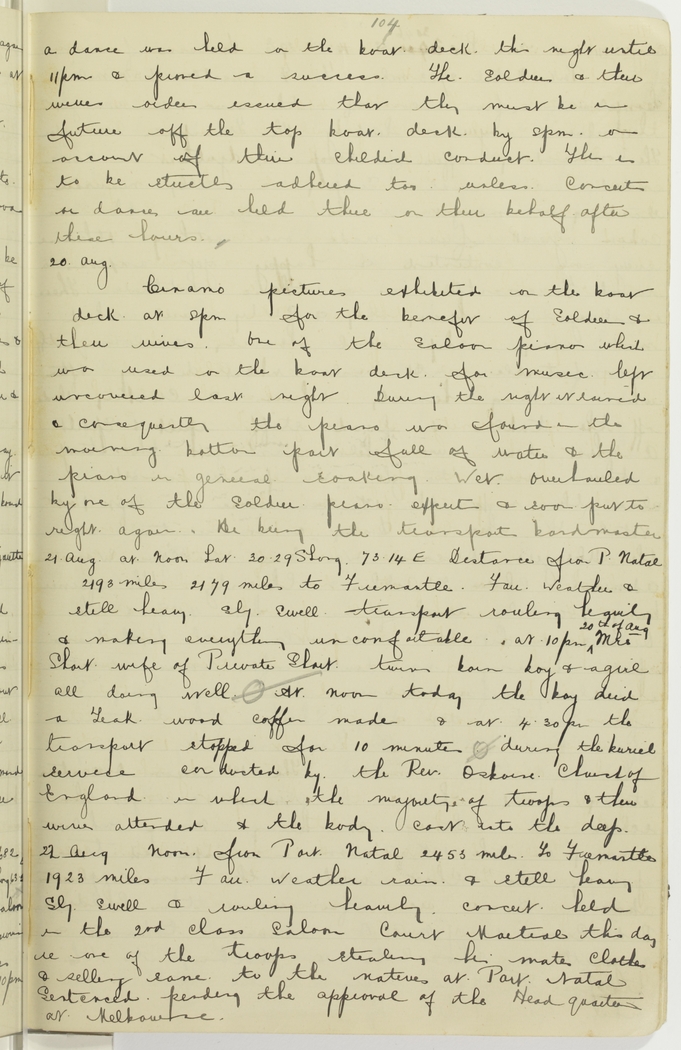 104
a dance was held on the boat deck this night until
11pm & proved a success. The Soldiers & their
wives orders issued that they must be in
future off the top boat deck by 8pm on
account of their childish conduct. This is
to be strictly adhered too unless Concerts
or dances are held there on their behalf after
these hours.
20 Aug
Cinamo pictures exhibited on the boat
deck at 8pm for the benefit of Soldiers &
their wives. One of the Saloon pianos which
was used on the boat deck for music left
uncovered last night. During the night it rained
& consequently the piano was found in the
morning bottom part full of water & the
piano in general soaking wet. Overhauled
by one of the Soldier piano expert & soon put to
right again. He being the transport bandmaster
21 Aug at Noon Lat 20.29 S Long. 73.14 E Distance from P. Natal
2193 miles 2179 miles to Fremantle. Fair Weather &
still heavy Sly Swell transport rouling heavily
& making everything uncomfortable. at 10pm 20th of Aug Mrs
Short wife of Private Short twins born boy & a girl
all doing well. At noon today the boy died
a Teak wood coffin made & at 4.30pm the
transport stopped for 10 minutes during the buriel
service conducted by the Rev. Osborne Church of
England in which the majority of troops & their
wives attended & the body cast into the deep.
22 Aug Noon. from Port Natal 2453 miles. To Fremantle
1923 miles Fair Weather rain & still heavy
Sly Swell & rouling heavily. concert held
in the 2nd class Saloon Court Martial this day
re one of the troops stealing his mates Clothes
& selling same to the natives at Port Natal
Sentenced pending the approval of the Head quarters
at Melbourne.